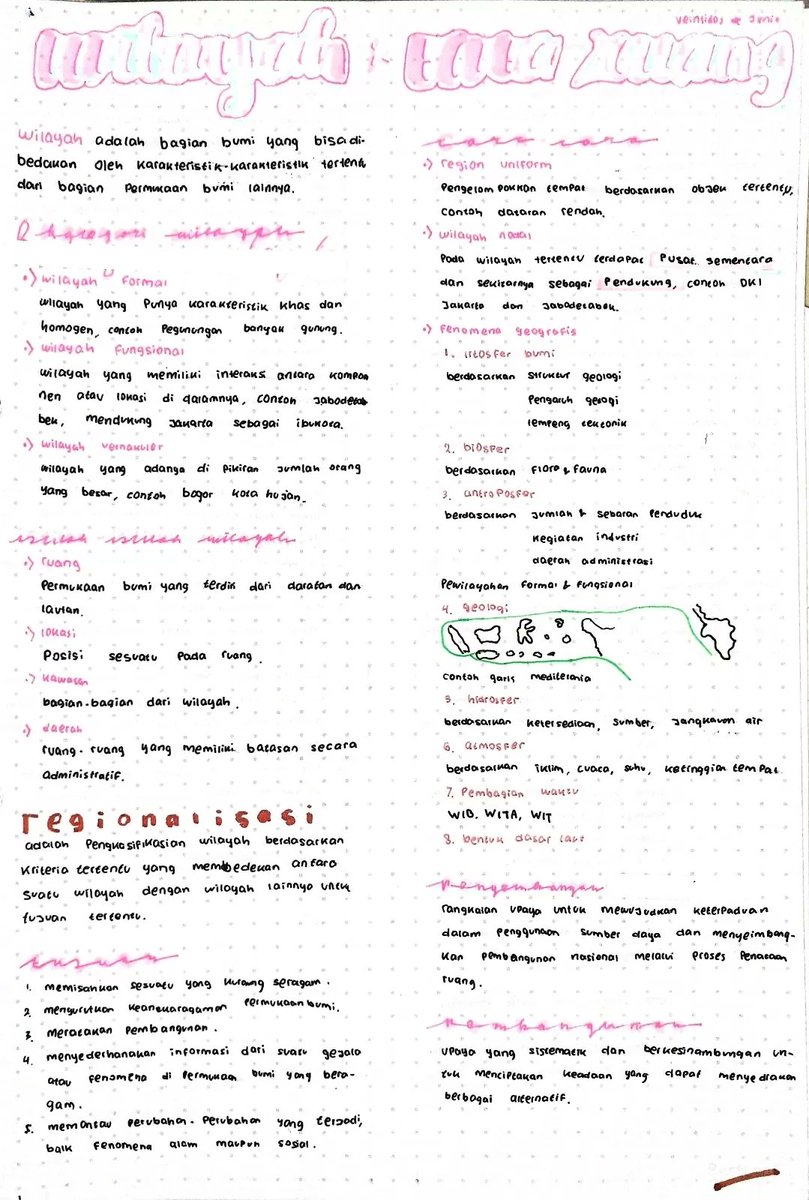 veintidos de Junio
Wilayah & tata ruang
Wilayah adalah bagian bumi yang bisa di-
bedakan oleh karakteristik-karakteristik tertentu
dari bagian permukaan bumi lainnya.
kategori wilayah
•) wilayah formal
wilayah yang punya karakteristik khas dan
homogen, contoh Pegunungan banyak gunung.
•) wilayah fungsional
wilayah yang memiliki interaksi antara kompo
nen atau lokasi di dalamnya, contoh jabodeta
bek, mendukung jakarta sebagai ibukota.
•) wilayah vernakuler
wilayah yang adanya di pikiran jumlah orang
yang besar, contoh bogor kota hujan.
istilah istilah wilayah
•) ruang
Permukaan bumi yang terdiri dari daratan dan
lautan.
•) lokasi
Posisi sesuatu pada ruang.
•) kawasan
bagian-bagian dari wilayah.
•) daerah
ruang-ruang yang memiliki batasan secara
administratif.
regionalisasi
adalah Pengklasifikasian wilayah berdasarkan
kriteria tertentu yang membedakan antara
suatu wilayah dengan wilayah lainnya untuk
tujuan tertentu.
tujuan
1. memisahkan sesuatu yang kurang seragam.
2. mengurutkan keanekaragaman permukaan bumi.
3. meratakan pembangunan.
4. menyederhanakan informasi dari suatu gejala
atau fenomena di permukaan bumi yang bera-
gam.
5. memantau perubahan-perubahan yang terjadi,
baik fenomena alam maupun sosial.
cara cara
•) region uniform
Pengelompokkan tempat berdasarkan objek tertentu,
contoh dataran rendah.
•) wilayah nodal
Pada wilayah tertentu terdapat Pusat sementara
dan sekitarnya sebagai Pendukung, contoh DKI
Jakarta dan Jabodetabek.
•) fenomena geografis
1. litosfer bumi
berdasarkan struktur geologi
Pengaruh geologi
lempeng tektonik
2. biosfer
berdasarkan flora & fauna
3. antroposfer
berdasarkan jumlah & sebaran penduduk
kegiatan industri
daerah administrasi
Pewilayahan formal & fungsional
4. geologi
contoh garis mediterania
5. hidrosfer
berdasarkan ketersediaan, sumber, jangkauan air
6. atmosfer
berdasarkan iklim, cuaca, suhu, ketinggian tempat
7. Pembagian waktu
WIB, WITA, WIT
8. bentuk dasar laut
Pengembangan
rangkaian upaya untuk mewujudkan keterpaduan
dalam penggunaan sumber daya dan menyeimbang-
kan pembangunan nasional melalui proses penataan
ruang.
Pembangunan
upaya yang sistematik dan berkesinambungan un-
tuk menciptakan keadaan yang dapat menyediakan
berbagai alternatif.